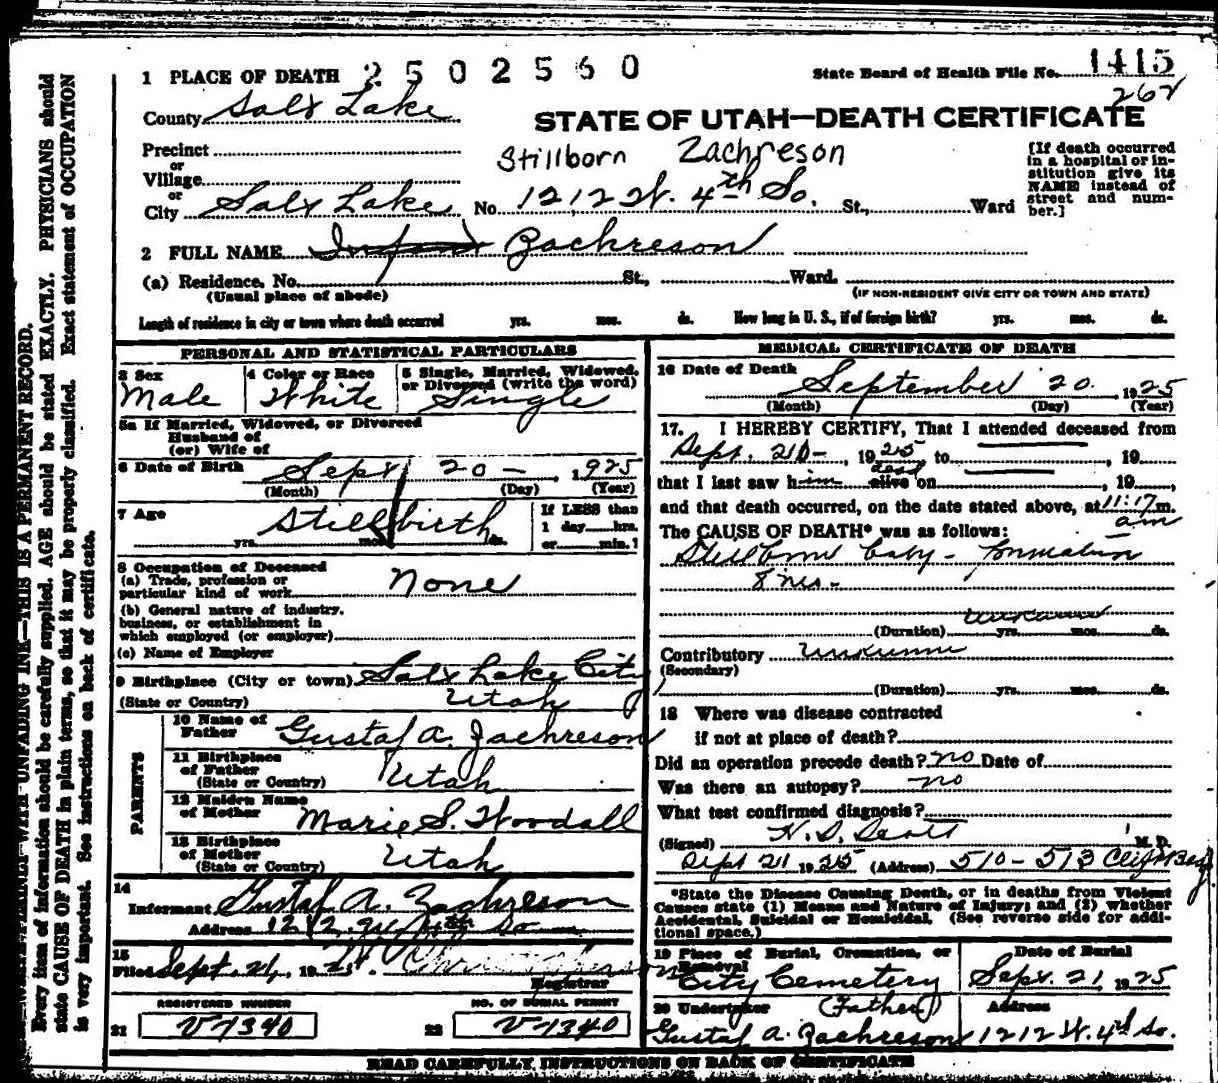 1 PLACE OF DEATH 2502560
State Board of Health File No. 1415
262
County Salt Lake
STATE OF UTAH—DEATH CERTIFICATE
Precinct
or
Village
or
City Salt Lake No. 1212 W. 4th So. St., Ward
Stillborn Zachreson
[If death occurred
in a hospital or in-
stitution give its
NAME instead of
street and num-
ber.]
2 FULL NAME Infant Zachreson
(a) Residence. No. St., Ward.
(Usual place of abode)
(IF NON-RESIDENT GIVE CITY OR TOWN AND STATE)
Length of residence in city or town where death occurred yrs. mos. ds. How long in U. S., if of foreign birth? yrs. mos. ds.
PERSONAL AND STATISTICAL PARTICULARS
3 Sex
Male
4 Color or Race
White
5 Single, Married, Widowed,
or Divorced (write the word)
Single
5a If Married, Widowed, or Divorced
Husband of
(or) Wife of
6 Date of Birth Sept 20 — , 1925
(Month) (Day) (Year)
7 Age Stillbirth
yrs. mos. ds.
If LESS than
1 day hrs.
or min.?
8 Occupation of Deceased
(a) Trade, profession or
particular kind of work None
(b) General nature of industry,
business, or establishment in
which employed (or employer)
(c) Name of Employer
9 Birthplace (City or town) Salt Lake City
(State or Country) Utah
PARENTS
10 Name of
Father Gustaf A. Zachreson
11 Birthplace
of Father
(State or Country) Utah
12 Maiden Name
of Mother Marie S. Woodall
13 Birthplace
of Mother
(State or Country) Utah
14
Informant Gustaf A. Zachreson
Address 1212 W. 4th So.
15
Filed Sept. 21, 1925.
Registrar
REGISTERED NUMBER
21 V-1340
NO. OF BURIAL PERMIT
22 V-1340
MEDICAL CERTIFICATE OF DEATH
16 Date of Death
September 20 1925
(Month) (Day) (Year)
17. I HEREBY CERTIFY, That I attended deceased from
Sept. 20 — , 1925 to , 19
dead
that I last saw him alive on , 19 ,
and that death occurred, on the date stated above, at 11:17 m.
am
The CAUSE OF DEATH* was as follows:
Stillborn baby —
8 mo.
unknown
(Duration) yrs. mos. ds.
Contributory Unknown
(Secondary)
(Duration) yrs. mos. ds.
18 Where was disease contracted
if not at place of death?
Did an operation precede death? no Date of
Was there an autopsy? no
What test confirmed diagnosis?
(Signed) M. D.
Sept 21 1925 (Address) 510-513 Clift Bldg
*State the Disease Causing Death, or in deaths from Violent
Causes state (1) Means and Nature of Injury; and (2) whether
Accidental, Suicidal or Homicidal. (See reverse side for addi-
tional space.)
19 Place of Burial, Cremation, or
Removal
City Cemetery
Date of Burial
Sept. 21, 1925
20 Undertaker (Father)
Gustaf A. Zachreson
Address
1212 W. 4th So.
READ CAREFULLY INSTRUCTIONS ON BACK OF CERTIFICATE
WITH UNFADING INK—THIS IS A PERMANENT RECORD.
Every item of information should be carefully supplied. AGE should be stated EXACTLY. PHYSICIANS should
state CAUSE OF DEATH in plain terms, so that it may be properly classified. Exact statement of OCCUPATION
is very important. See instructions on back of certificate.